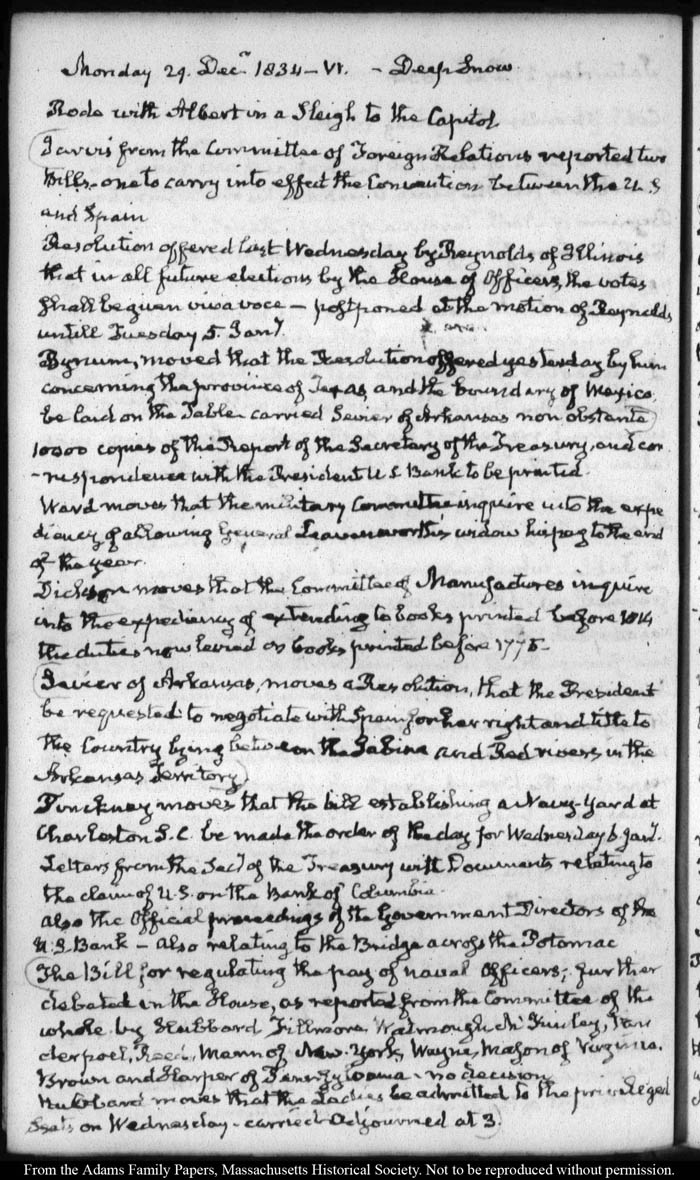 Monday 29. Decr 1834 – VI. – Deep Snow
Rode with Albert in a Sleigh to the Capitol
(Jarvis from the Committee of Foreign Relations reported two
Bills – one to carry into effect the Convention between the U.S
and Spain
Resolution offered last Wednesday by Reynolds of Illinois
that in all future elections by the House of Officers, the votes
shall be given viva voce – postponed at the motion of Reynolds
untill Tuesday 5. Jany.
Bynum, moved that the Resolution offered yesterday by him
concerning the province of Texas and the boundary of Mexico
be laid on the Table carried Sevier of Arkansas non obstante)
10000 copies of the Report of the Secretary of the Treasury, and cor
-respondence with the President U S Bank to be printed.
Ward moves that the military Committee inquire into the expe
diency of allowing General Leavenworth's widow his pay to the end
of the year.
Dickson moves that the Committee of Manufactures inquire
into the expediency of extending to books printed before 1814
the duties now levied on books printed before 1775–
(Sevier of Arkansas, moves a Resolution, that the President
be requested to negotiate with Spain for her right and title to
the Country lying between the Sabine and Red rivers in the
Arkansas Territory)
Pinckney moves that the bill establishing a Navy-Yard at
Charleston S.C. be made the order of the day for Wednesday 6 Jany.
Letters from the Secy of the Treasury with Documents relating to
the claim of U.S. on the Bank of Columbia.
also the Official proceedings of the Government Directors of the
U.S. Bank – also relating to the Bridge across the Potomac
(The Bill for regulating the pay of naval Officers, further
debated in the House, as reported from the Committee of the
whole by Hubbard Fillmore, Watmough, McKinley, Van
derpoel, Reed, Mann of New-York, Wayne, Mason of Virginia.
Brown and Harper of Pennsylvania – no decision
Hubbard moves that the Ladies be admitted to the privileged
Seats on Wednesday – carried Adjourned at 3.)
From the Adams Family Papers, Massachusetts Historical Society. Not to be reproduced without permission.